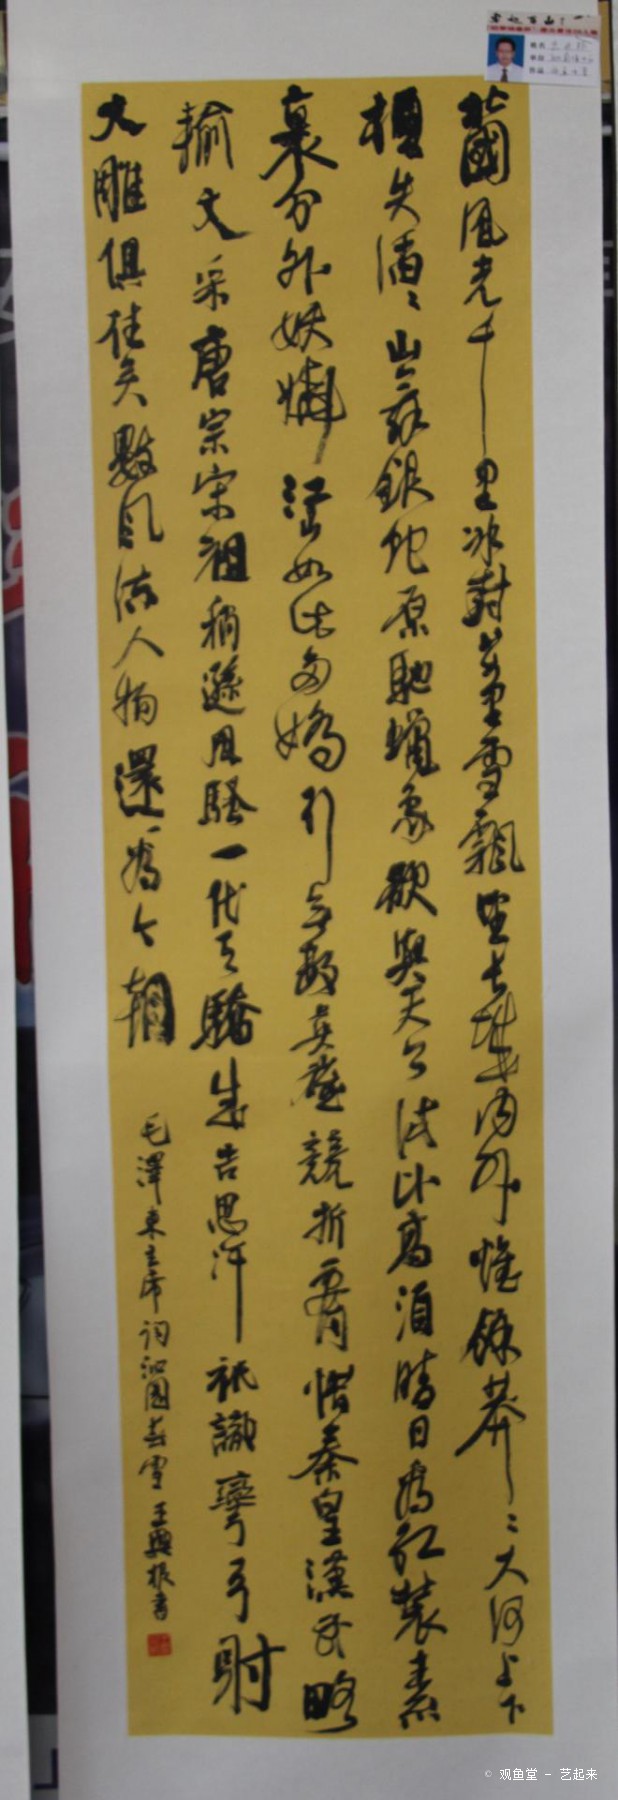 北國風光千里冰封萬里雪飄望長城内外惟餘莽〻大河上下
頓失滔〻山舞銀蛇原馳蠟象欲與天公試比高須晴日看紅裝素
裹分外妖嬈江山如此多嬌引無數英雄競折腰惜秦皇漢武略
輸文采唐宗宋祖稍遜風騷一代天驕成吉思汗祇識彎弓射
大雕俱往矣數風流人物還看今朝
毛澤東主席詞沁園春雪 王興振書
© 观鱼堂 - 艺起来